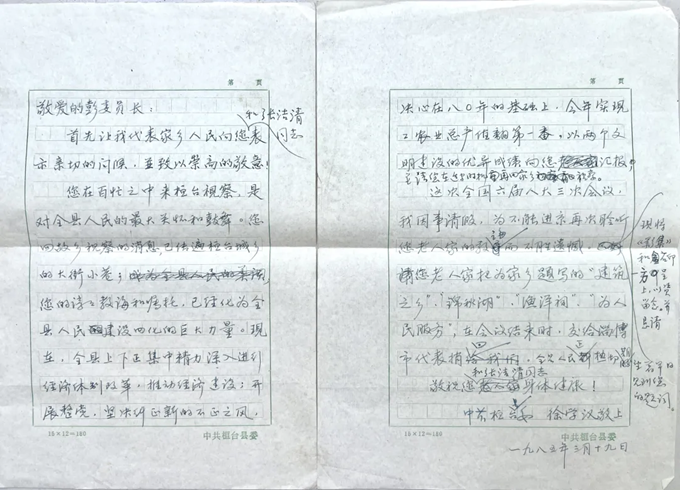 第 页
敬爱的彭委员长：
和张洁清同志
首先让我代表家乡人民向您表
示亲切的问候，并致以崇高的敬意！
您在百忙之中来桓台视察，是
对全县人民的最大关怀和鼓舞。您
回故乡视察的消息，已传遍桓台城乡
的大街小巷；
您的谆谆教诲和嘱托，已经化为全
县人民建设四化的巨大力量。现
在，全县上下正集中精力深入进行
经济体制改革，推动经济建设；开
展整党，坚决纠正新的不正之风，
15×12=180
中共桓台县委
第 页
决心在八〇年的基础上，今年实现
工农业总产值翻第一番，以两个文
明建设的优异成绩向您汇报，
这次全国六届人大三次会议，
我因事请假，为不能进京再次聆听
您老人家的教诲而不胜遗憾，
请您老人家把为家乡题写的“建筑
之乡”，“锦秋湖”，“渔洋祠”，“为人
民服务”，在会议结束时，交给淄博
市代表捎
和张洁清同志
敬祝您身体健康！
中共桓台 徐学汉敬上
一九八五年三月十九日
现将
《影集》
和
一方
上，
15×12=180
中共桓台县委